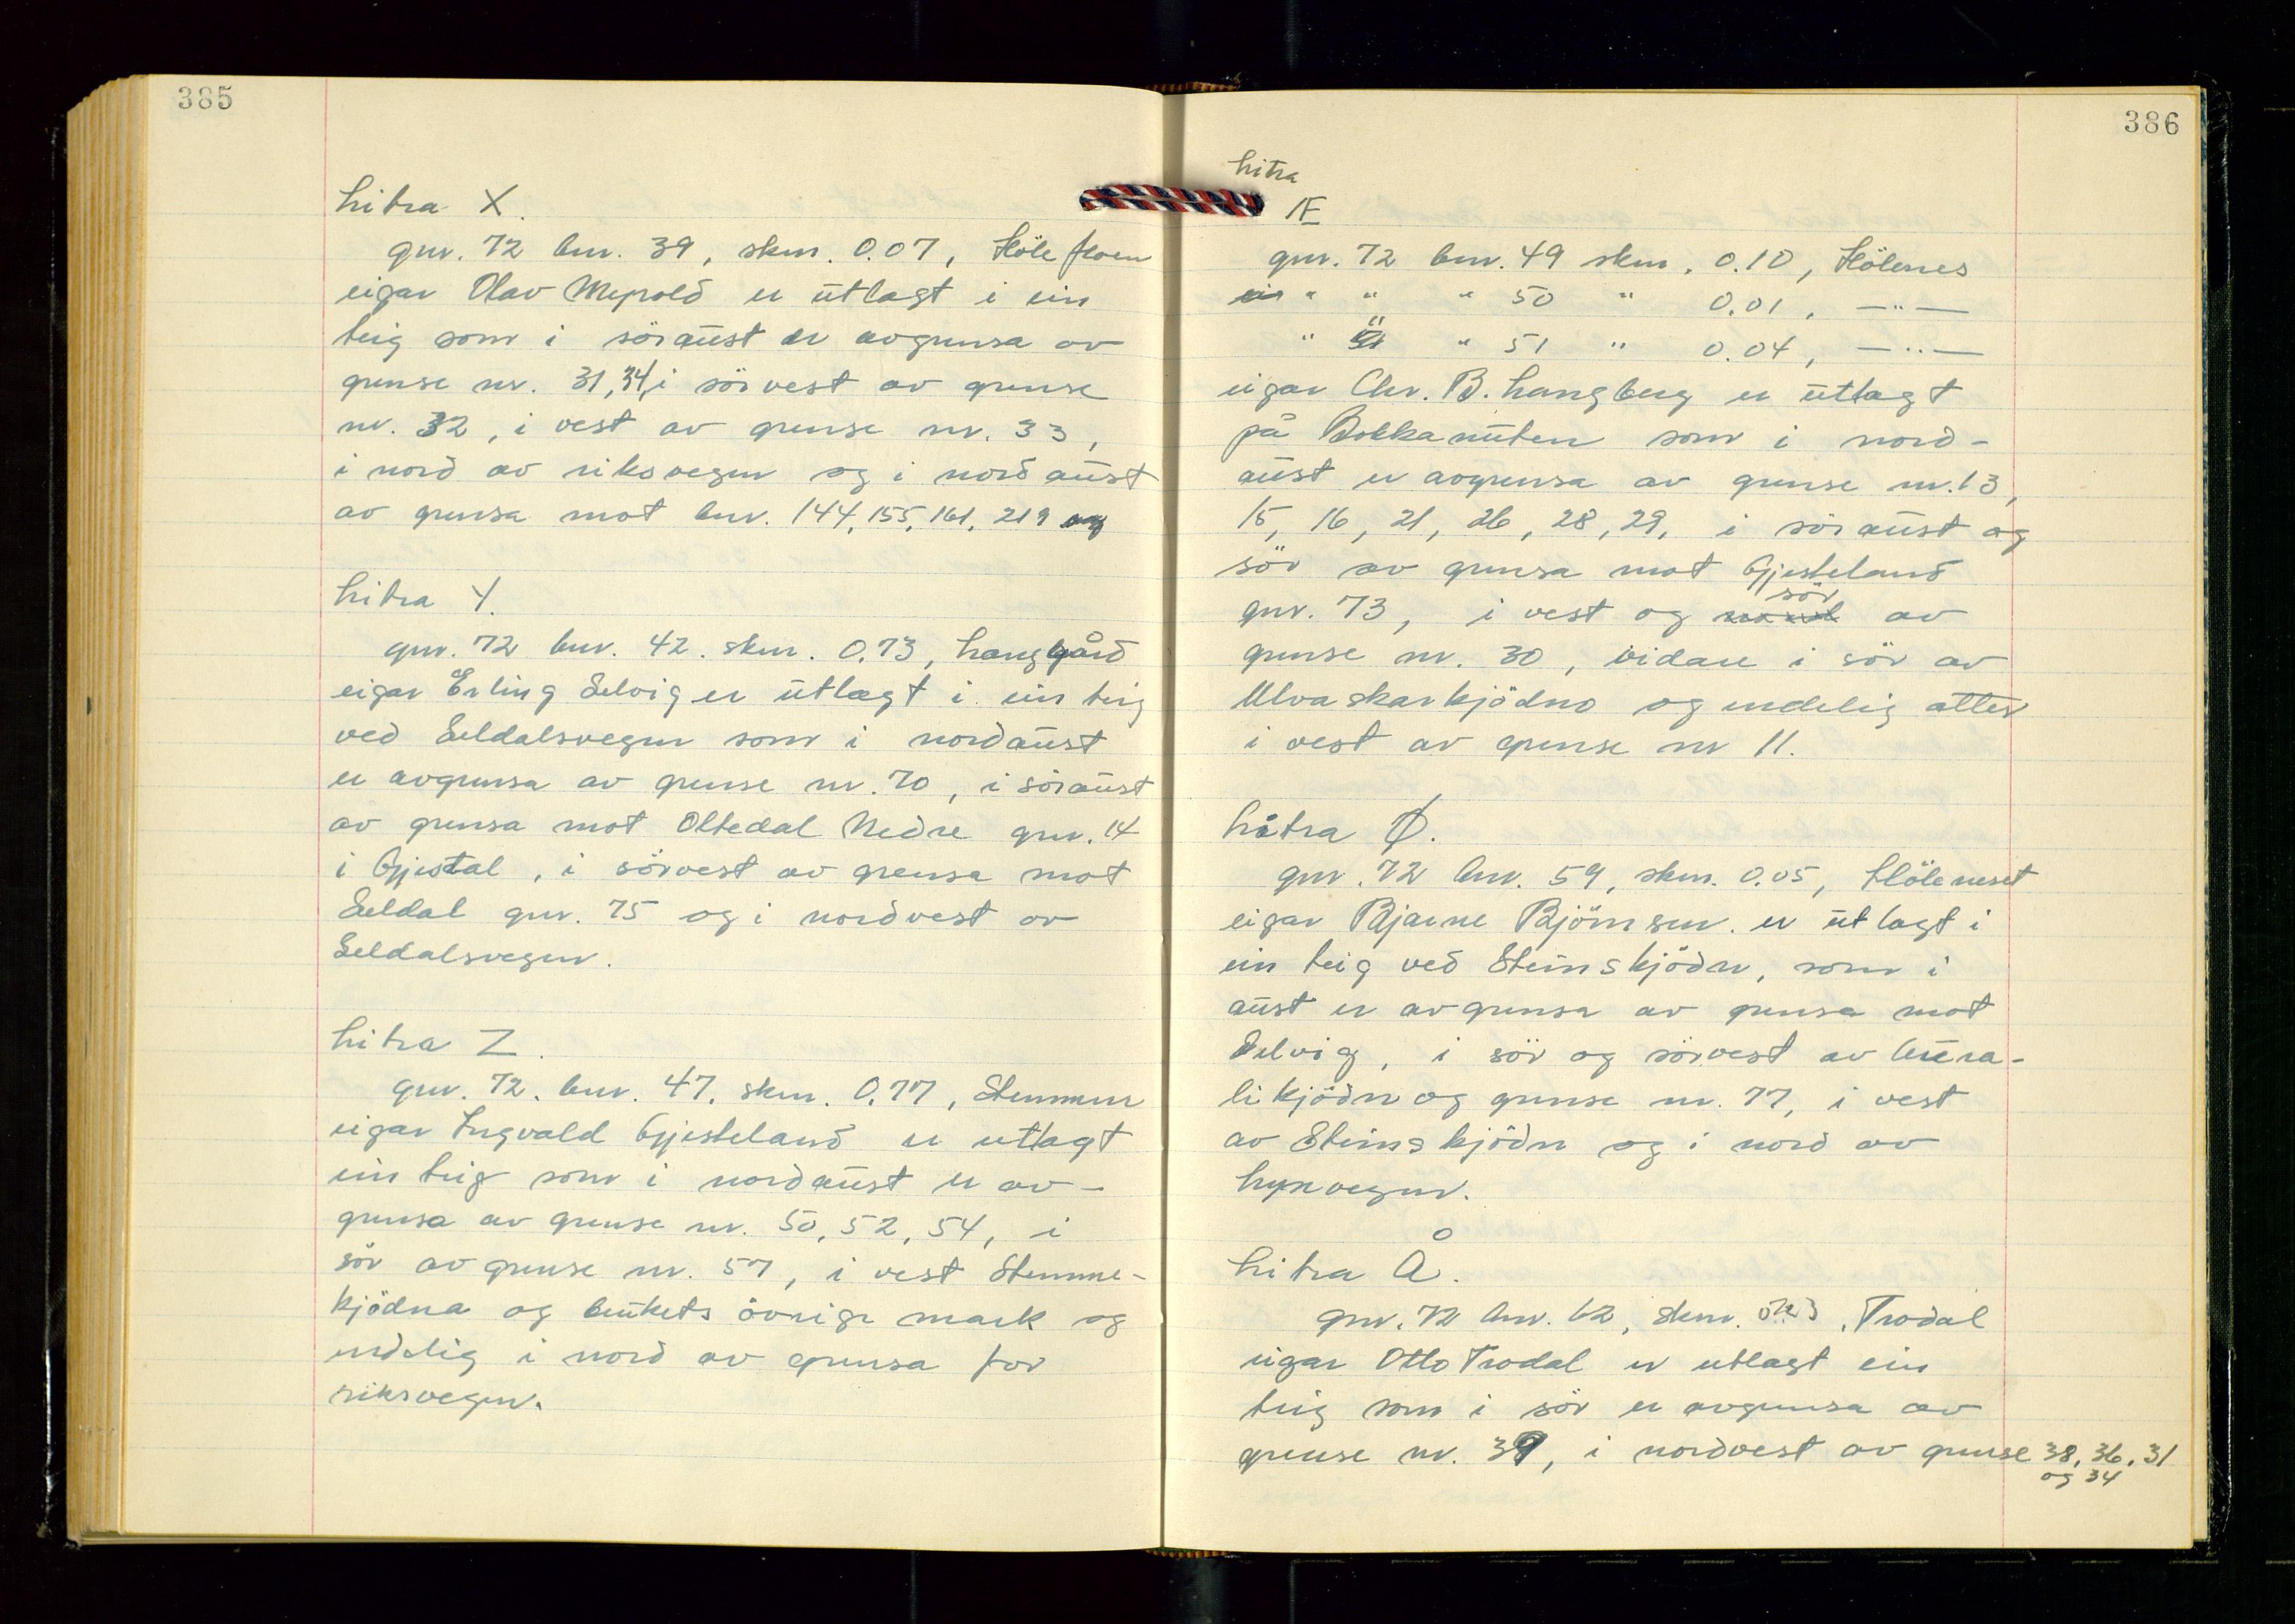 385
Litra X.
gnr. 72 bnr. 39, skm. 0.07, Höle
eigar Olav er utlagt i ein
teig som i söraust er avgrensa av
grense nr. 31, 34, i sörvest av grense
nr. 32, i vest av grense nr. 33,
i nord av riksvegen og i nordaust
av grensa mot bnr. 144, 155, 161, 219 og
Litra Y.
gnr. 72 bnr. 42. skm. 0.73, Langgård
eigar Erling Selvig er utlagt i ein teig
ved Seldalsvegen som i nordaust
er avgrensa av grense nr. 70, i söraust
av grensa mot Oltedal Nedre gnr. 14
i Gjestal, i sörvest av grensa mot
Seldal gnr. 75 og i nordvest av
Seldalsvegen.
Litra Z.
gnr. 72. bnr. 47. skm. 0.77, Stemmen
eigar Ingvald Gjesteland er utlagt
ein teig som i nordaust er av-
grensa av grense nr. 50, 52, 54, i
sör av grense nr. 57, i vest Stemme-
kjödna og brukets övrige mark og
endelig i nord av grensa for
riksvegen.
386
Litra
Æ
gnr. 72 bnr. 49 skm. 0.10, Hölenes
" " " 50 " 0.01, —"—
" " " 51 " 0.04, —"—
eigar Chr. B. Langberg er utlagt
på Bokkanuten som i nord-
aust er avgrensa av grense nr. 13,
15, 16, 21, 26, 28, 29, i söraust og
sör av grensa mot Gjesteland
gnr. 73, i vest og nord sör av
grense nr. 30, vidare i sör av
Ulvaskarkjödno og endelig atter
i vest av grense nr 11.
Litra Ø.
gnr. 72 bnr. 59, skm. 0.05, Höleneset
eigar Bjarne Björnsen. er utlagt i
ein teig ved Steinskjödn, som i
aust er avgrensa av grensa mot
Selvig, i sör og sörvest av
likjödn og grense nr. 77, i vest
av Steinskjödn og i nord av
Litra Å.
gnr. 72 bnr. 62, skm. , Trodal
eigar Otto Trodal er utlagt ein
teig som i sör er avgrensa av
grense nr. 39, i nordvest av grense 38, 36, 31
og 34